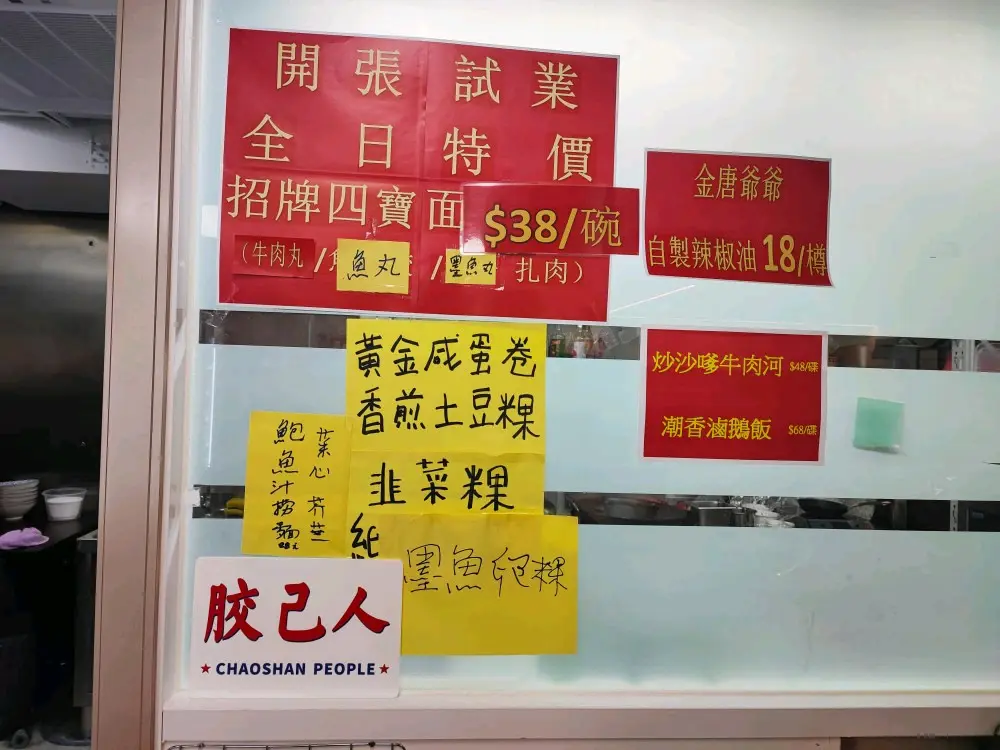 開張試業
全日特價
招牌四寶面 $38/碗
（牛肉丸/魚丸/墨魚丸 扎肉）
金唐爺爺
自製辣椒油 18/樽
黃金咸蛋卷
香煎土豆粿
韭菜粿
墨魚卵粿
炒沙嗲牛肉河 $48/碟
潮香滷鵝飯 $68/碟
菜心 芥芏
鮑魚汁撈麵
胶己人
★CHAOSHAN PEOPLE★